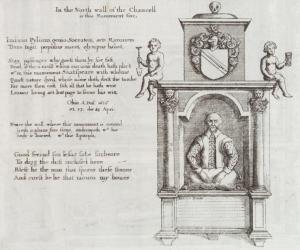 In the North wall of the Chancell
is this Monument fixt.
Iudicio Pylium, genio Socratem, arte Maronem
Terra tegit, populus mæret, olympus habet.
Stay passenger why goest thou by soe fast
Read if thou canst whom envious death hath plac't
wthin this monument Shakspeare with whome
Quick nature dyed whose name doth deck the tombe
Far more then cost sith all that he hath writ
Leaves living art but page to serve his wit.
Obiit
Near the wall where this monument is erected
lyeth a plaine free stone, underneath wch his
body is buried wth this Epitaph,
Good friend for Iesus sake forbeare
To digg the dust inclosed here
Blest be the man that spares these stones
And curst be he that moves my bones